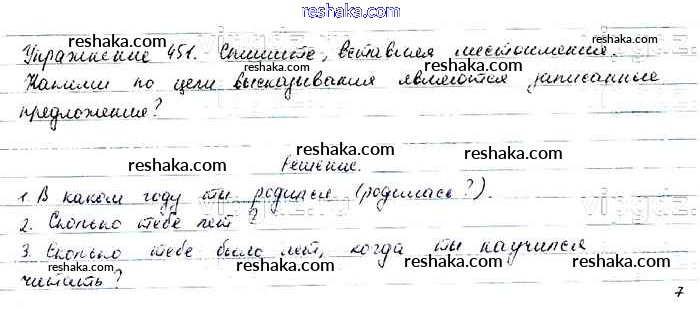 reshaka.com
Упражнение 451. Спишите, вставляя местоимения.
reshaka.com reshaka.com reshaka.com
Какими по цели высказывания являются записанные
reshaka.com
предложение?
reshaka.com
reshaka.com reshaka.com
Решение.
1. В каком году ты родился (родилась?).
reshaka.com
2. Сколько тебе лет?
reshaka.com
3. Сколько тебе было лет, когда ты научился
reshaka.com reshaka.com
читать?
7